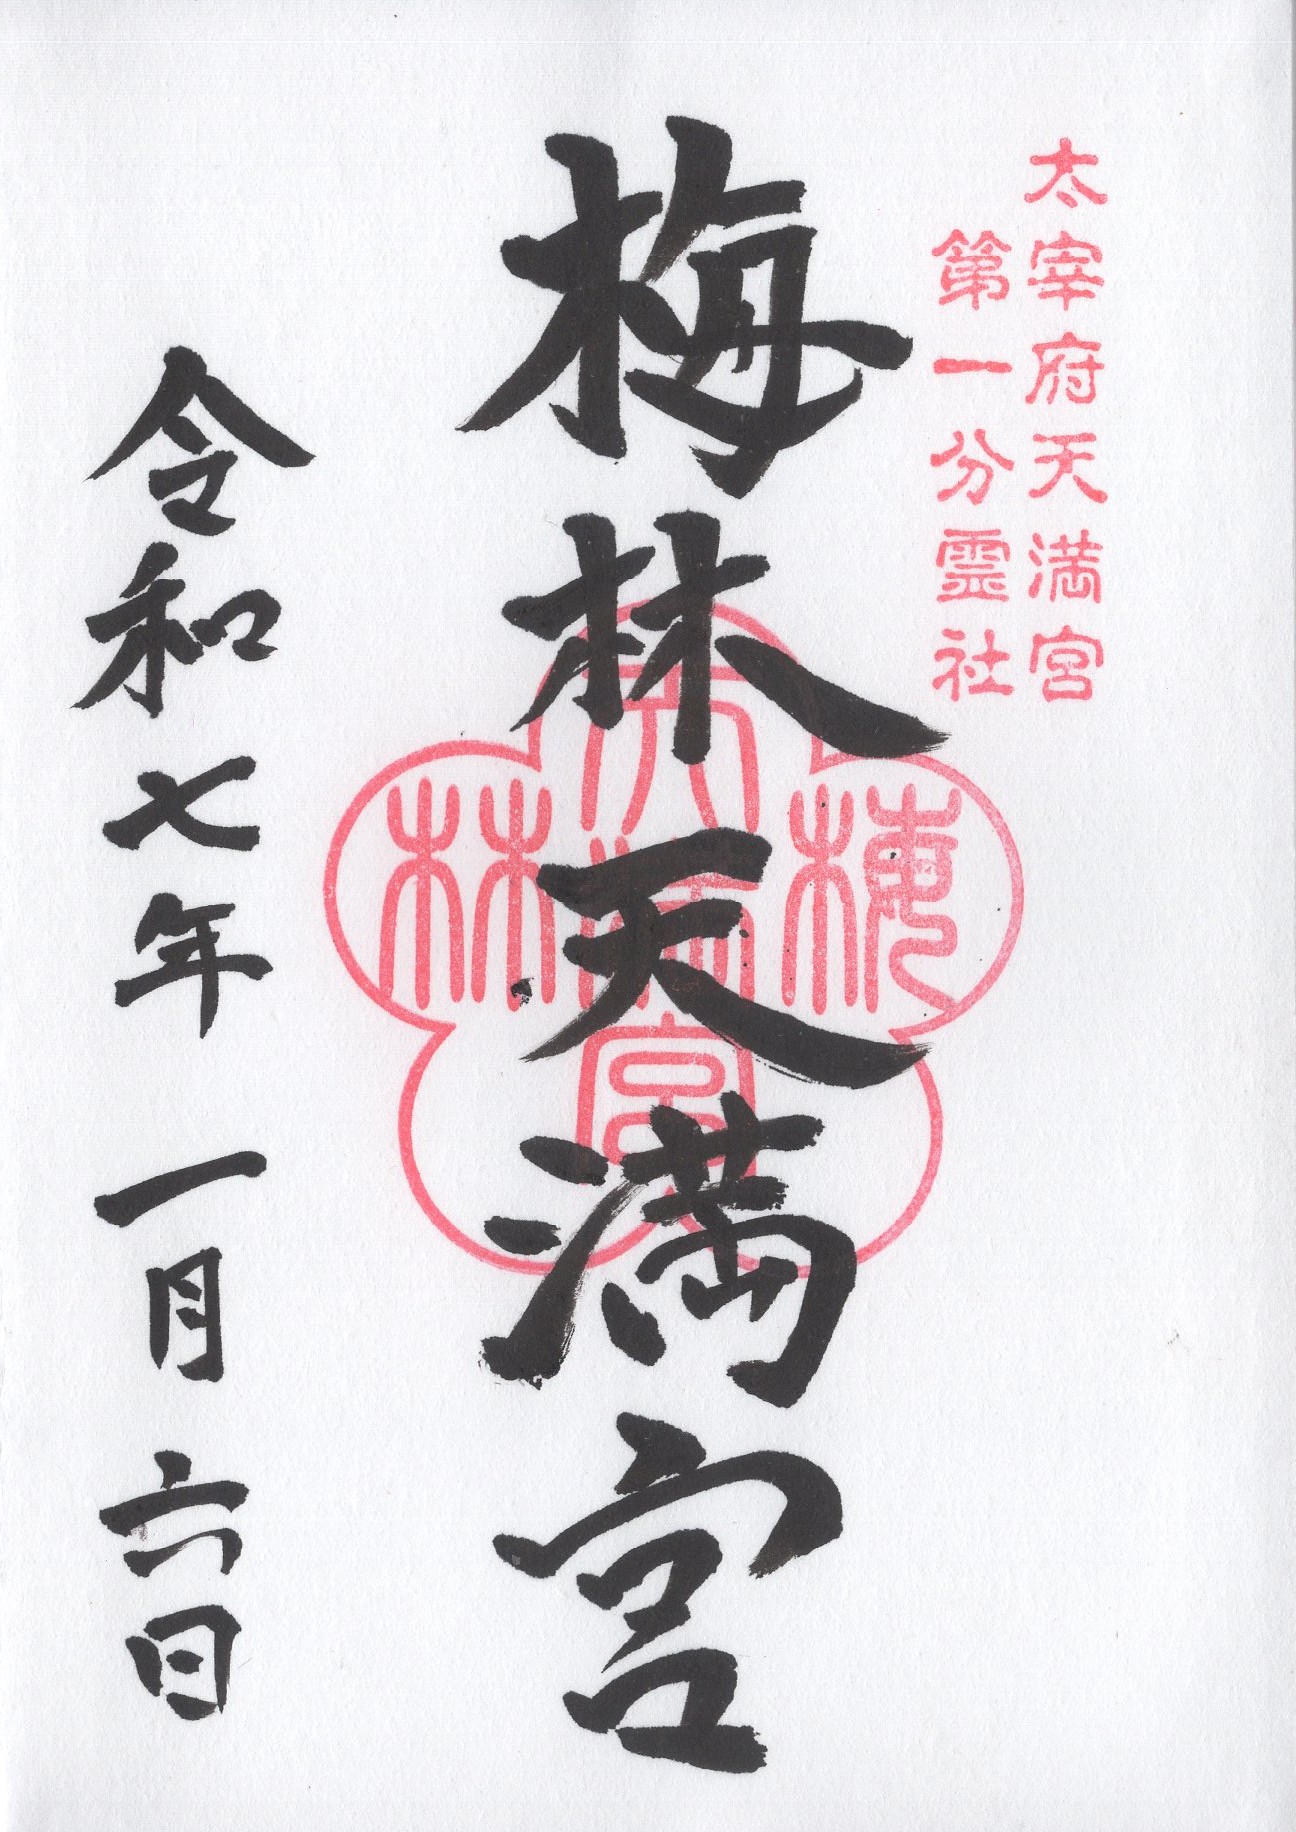 太宰府天満宮
第一分霊社
梅林天満宮
梅林
天満宮
令和七年一月六日